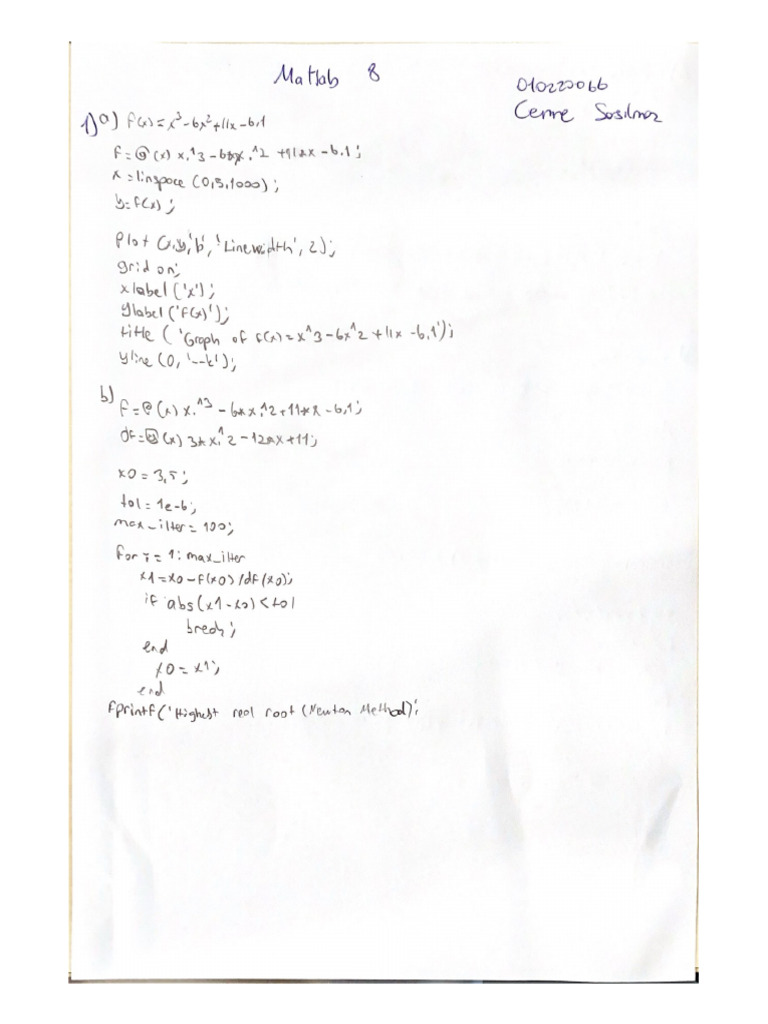 Matlab 8
010220066
Cemre
1) a) f(x) = x³-6x²+11x-6,1
f=@(x) x.^3-6*x.^2 +11*x-6.1;
x=linspace(0,5,1000);
y=f(x);
Plot (x,y,'b','Linewidth',2);
grid on;
xlabel('x');
ylabel('f(x)');
title ('Graph of f(x)=x^3-6x^2+11x-6,1');
yline (0,'--k');
b)
f=@(x) x.^3-6*x.^2+11*x-6,1;
df=@(x) 3*x.^2-12*x+11;
x0=3,5;
tol=1e-6;
max_iter=100;
for i=1:max_iter
x1=x0-f(x0)/df(x0);
if abs(x1-x0)<tol
break;
end
x0=x1;
end
fprintf('Highest real root (Newton Method);